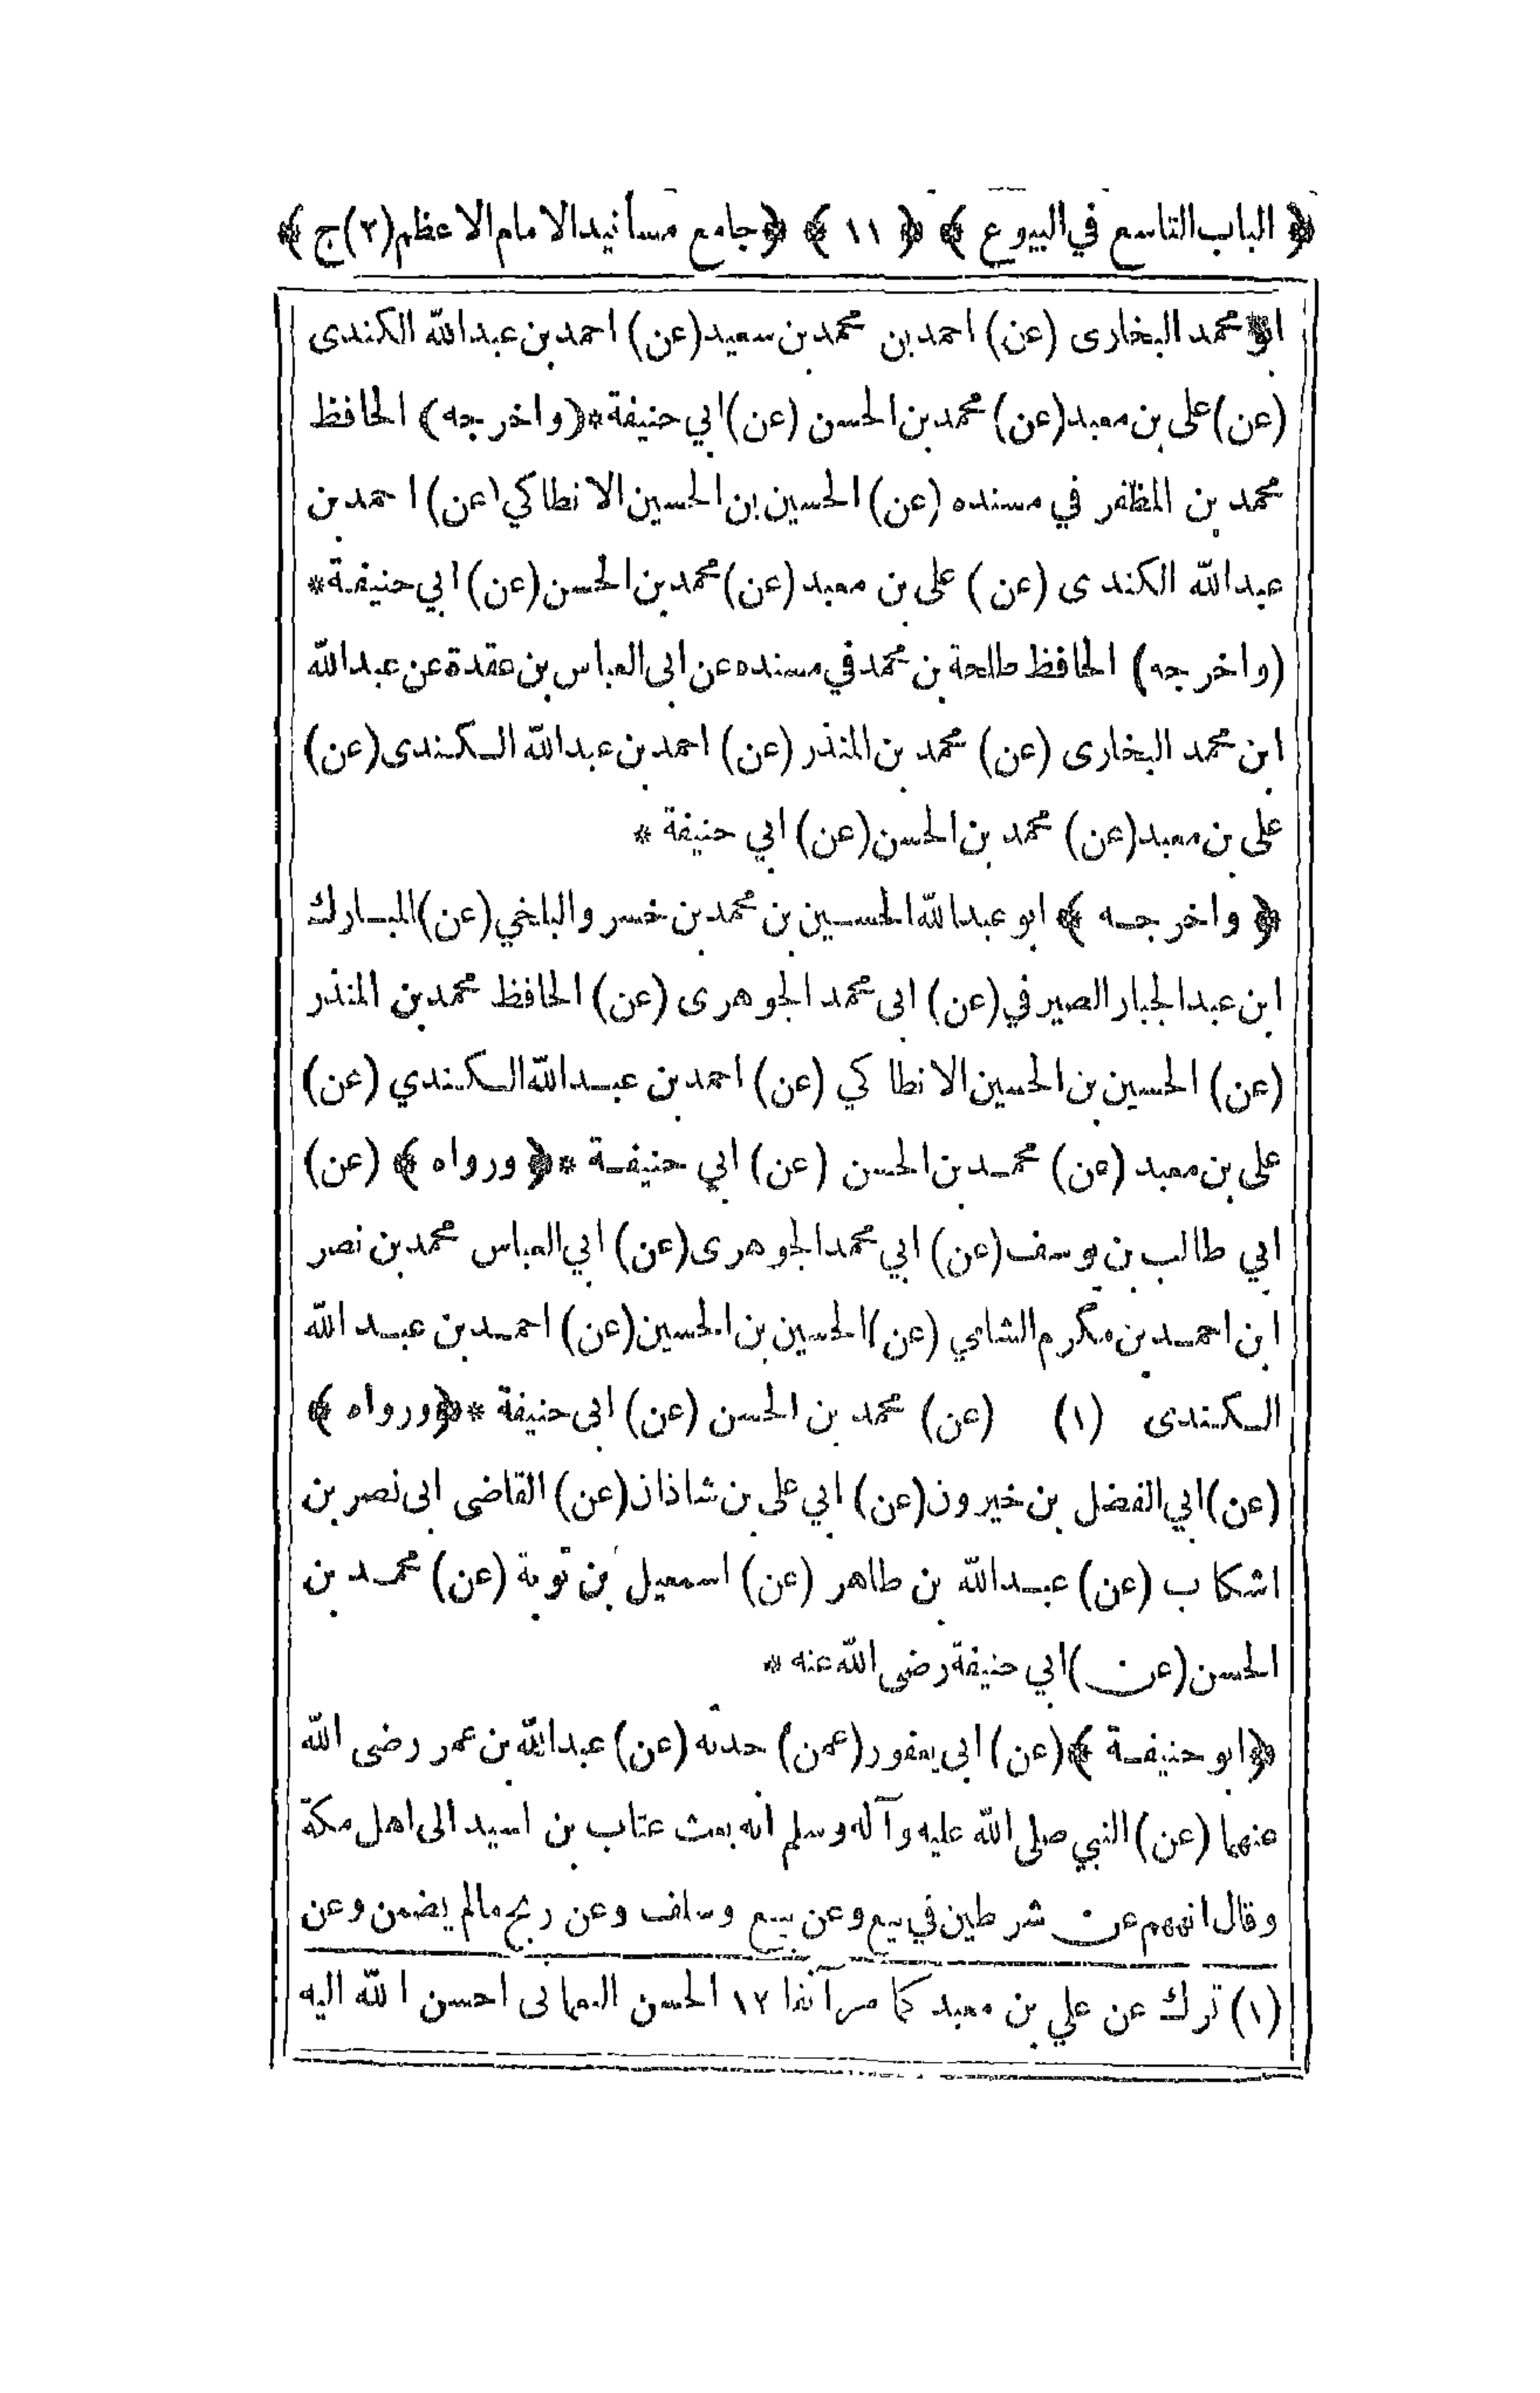 ﴿ الباب التاسع في البيوع ﴾ ﴿ ١١ ﴾ ﴿ جامع مسانيد الامام الاعظم (٢) ج ﴾
ابو محمد البخارى (عن) احمد بن محمد بن سعيد (عن) احمد بن عبد الله الكندى
(عن) على بن معبد (عن) محمد بن الحسن (عن) ابي حنيفة * (واخرجه) الحافظ
محمد بن المظفر في مسنده (عن) الحسين بن الحسين الانطاكي (عن) احمد بن
عبد الله الكندى (عن) على بن معبد (عن) محمد بن الحسن (عن) ابي حنيفة *
(واخرجه) الحافظ طلحة بن محمد في مسنده عن ابى العباس بن عقدة عن عبد الله
ابن محمد البخارى (عن) محمد بن المنذر (عن) احمد بن عبد الله الكندى (عن)
على بن معبد (عن) محمد بن الحسن (عن) ابي حنيفة *
﴿ واخرجه ﴾ ابو عبد الله الحسين بن محمد بن خسرو البلخي (عن) المبارك
ابن عبد الجبار الصيرفي (عن) ابى محمد الجوهرى (عن) الحافظ محمد بن المنذر
(عن) الحسين بن الحسين الانطاكي (عن) احمد بن عبد الله الكندي (عن)
على بن معبد (عن) محمد بن الحسن (عن) ابي حنيفة * ﴿ ورواه ﴾ (عن)
ابي طالب بن يوسف (عن) ابي محمد الجوهرى (عن) ابي العباس محمد بن نصر
ابن احمد بن مكرم الشامي (عن) الحسين بن الحسين (عن) احمد بن عبد الله
الكندى (١) (عن) محمد بن الحسن (عن) ابى حنيفة * ﴿ ورواه ﴾
(عن) ابي الفضل بن خيرون (عن) ابي على بن شاذان (عن) القاضى ابى نصر بن
اشكاب (عن) عبد الله بن طاهر (عن) اسمعيل بن توبة (عن) محمد بن
الحسن (عن) ابي حنيفة رضى الله عنه *
﴿ ابو حنيفة ﴾ (عن) ابى يعفور (عمن) حدثه (عن) عبد الله بن عمر رضى الله
عنهما (عن) النبي صلى الله عليه وآله وسلم انه بعث عتاب بن اسيد الى اهل مكة
وقال انههم عن شرطين في بيع وعن بيع وسلف وعن ربح مالم يضمن وعن
(١) ترك عن علي بن معبد كما مر آنفا ١٢ الحسن النعمانى احسن الله اليه